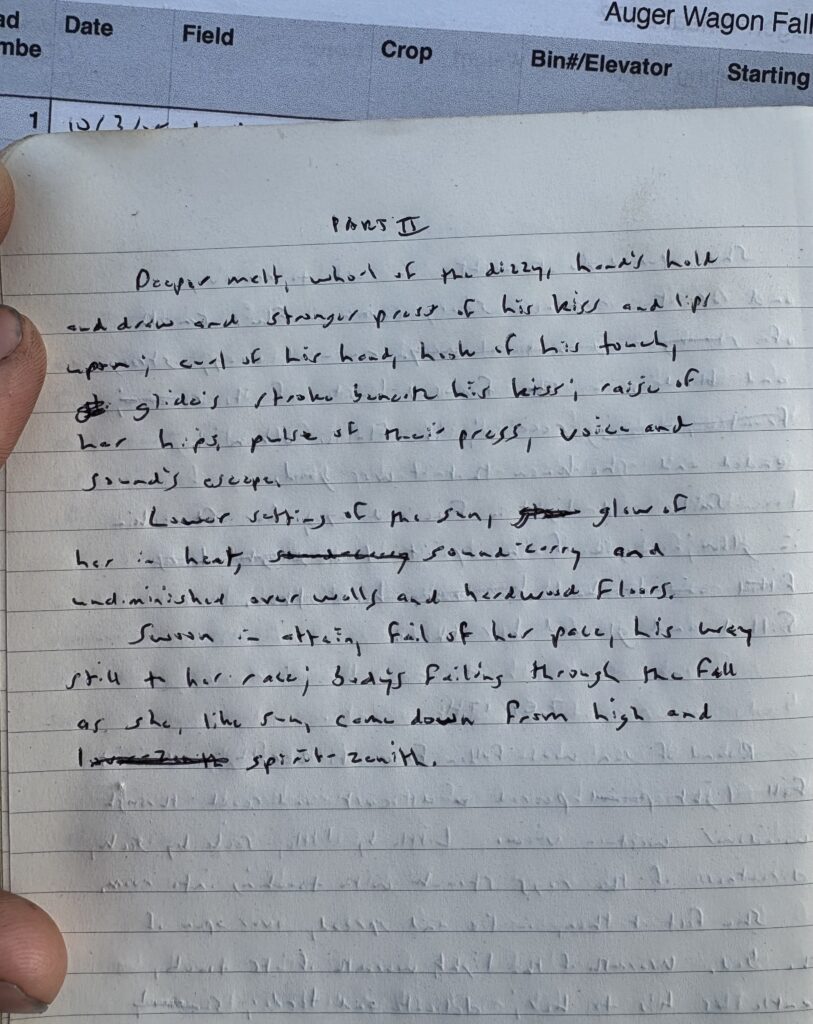 Auger Wagon Fall
ad
mbe
Date
Field
Crop
Bin#/Elevator
Starting
1
10/3/
PART II
Deeper melt, whorl of the dizzy, hand's hold
and draw and stronger press of his kiss and lips
upon; curl of his hand, hook of his touch,
glide's stroke beneath his kiss; raise of
her hips, pulse of their press, voice and
sound's escape.
Lower setting of the sun, glow of
her in heat, sound carry and
undiminished over walls and hardwood floors.
Swoon in attain, fail of her pace, his way
still to her race; body's failing through the fall
as she, like sun, come down from high and
spirit-zenith.